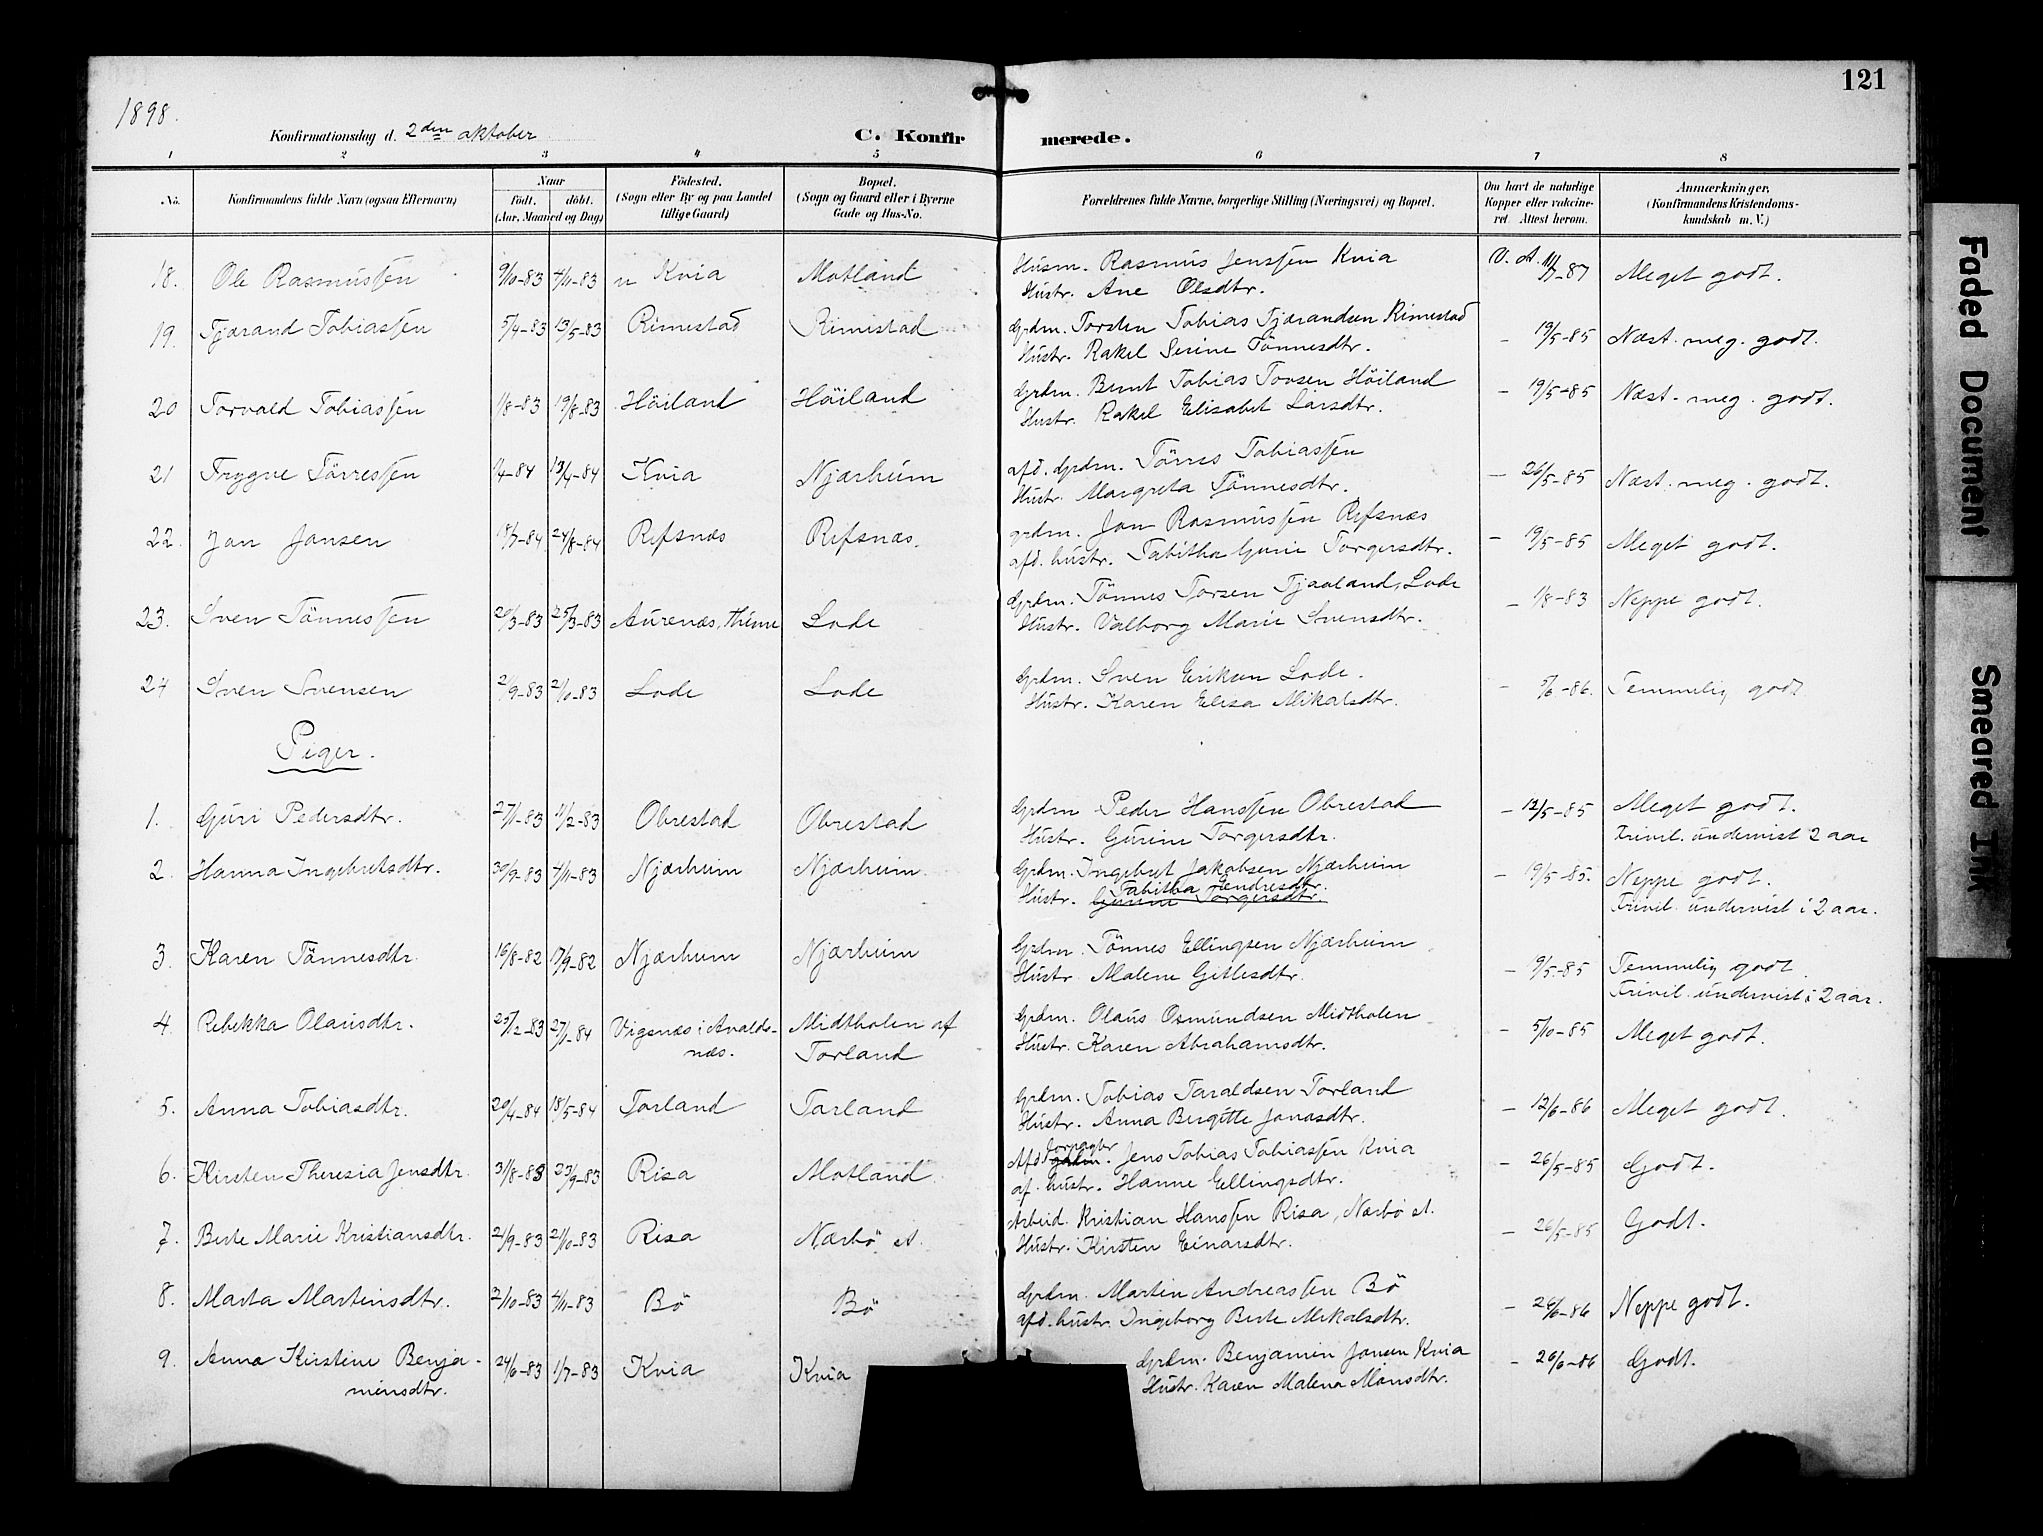 121
1898.
Konfirmationsdag d. 2den oktober
C. Konfirmerede.
1 2 3 4 5 6 7 8
No.
Konfirmandens fulde Navn (ogsaa Efternavn)
Naar
født. døbt.
(Aar, Maaned og Dag)
Fødested.
(Sogn eller By og paa Landet
tillige Gaard)
Bopæl.
(Sogn og Gaard eller i Byerne
Gade og Hus-No.
Forældrenes fulde Navne, borgerlige Stilling (Næringsvei) og Bopæl.
Om havt de naturlige
Kopper eller vakcine-
ret. Attest herom.
Anmærkninger,
(Konfirmandens Kristendoms-
kundskab m. V.)
18. Ole Rasmussen 9/10-83 4/11-83 Kvia Motland Husm. Rasmus Jenssen Kvia V. A. -87 Meget godt.
Hustr. Ane Olsdtr.
19. Tjærand Tobiassen 5/4-83 13/5-83 Rimestad Rimestad Grdm. Torsten Tobias Tjærandsen Rimestad - 19/5-85 Næst. meg. godt.
Hustr. Rakel Serine Tönnesdtr.
20 Torvald Tobiassen 1/8-83 19/8-83 Höiland Höiland Grdm. Bernt Tobias Tovsen Höiland - 19/5-85 Næst. meg. godt.
Hustr. Rakel Elisabet Larsdtr.
21 Trygve Törressen 1/4-84 13/4-84 Kvia Njærheim afd. Grdm. Törres Tobiassen - 26/5-85 Næst. meg. godt.
Hustr. Margreta Tönnesdtr.
22. Jan Jansen 18/7-84 24/8-84 Refsnæs Refsnæs. grdm. Jan Rasmussen Refsnæs - 19/5-85 Meget godt.
afd. hustr. Tabitha Gurie Torgersdtr.
23. Sven Tönnessen 20/3-83 25/3-83 Aurenæs, Thime Lode Grdm. Tönnes Torsen Tjaaland, Lode - 1/8-83 Neppe godt.
Hustr. Valborg Marie Svensdtr.
24 Sven Svensen 2/9-83 2/10-83 Lode Lode Grdm. Sven Eriksen Lode. - 5/6-86. Temmelig godt
Hustr. Karen Elisa Mikalsdtr.
Piger.
1. Guri Pedersdtr. 27/1-83 11/2-83 Obrestad Obrestad Grdm Peder Hanssen Obrestad - 12/5-85 Meget godt.
Hustr. Gurine Torgersdtr. Frivil. undervist i 2 aar
2. Hanna Ingebretsdtr. 30/9-83 4/11-83 Njærheim Njærheim. Grdm. Ingebret Jakobsen Njærheim - 19/5-85. Neppe godt.
Tabitha Endresdtr.
Hustr. Gurine Torgersdtr. Frivil. undervist i 2 aar.
3. Karen Tönnesdtr. 16/8-82 17/9-82 Njærheim Njærheim Grdm. Tönnes Ellingsen Njærheim - 19/5-85 Temmelig godt.
Hustr. Malene Gitlesdtr. Frivil. undervist i 2 aar.
4. Rebekka Olausdtr. 25/2-83 27/1-84 Vigsnæs i Avalds- Midtholen af Grdm. Olaus Osmundsen Midtholen - 5/10-85 Meget godt.
næs. Torland Hustr. Karen Abrahamsdtr.
5. Anna Tobiasdtr. 20/4-84 18/5-84 Torland Torland Grdm. Tobias Taraldsen Torland - 12/6-86 Meget godt.
Hustr. Anna Bergitte Jonasdtr.
6. Kirsten Theresia Jensdtr. 31/8-83 23/9-83 Risa Motland Afd. grdm. Jens Tobias Tobiassen Kvia - 26/5-85 Godt.
af. hustr. Hanne Ellingsdtr.
7. Berte Marie Kristiansdtr. 21/9-83 21/10-83 Risa Nærbö st. Arbeid. Kristian Hanssen Risa, Nærbö st. - 26/5-85 Godt.
Hustr. Kirsten Einarsdtr.
8. Marta Martinsdtr. 2/10-83 4/11-83 Bö Bö Grdm. Martin Andreassen Bö - 26/6-86 Neppe godt.
afd. hustr. Ingeborg Berte Mikalsdtr.
9. Anna Kirstine Benja- 24/6-83 1/7-83 Kvia Kvia Grdm. Benjamin Jansen Kvia - 26/6-86 Godt.
minsdtr. Hustr. Karen Malena Monsdtr.
Faded Document
Smeared Ink